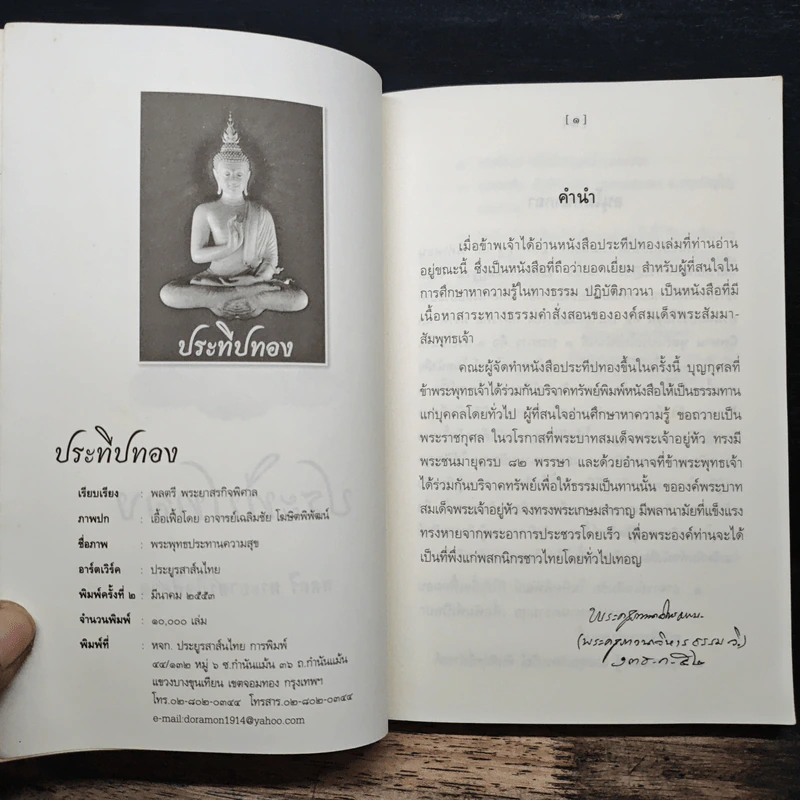 ประทีปทอง
ประทีปทอง
เรียบเรียง : พลตรี พระยาสรกิจพิศาล
ภาพปก : เอื้อเฟื้อโดย อาจารย์เฉลิมชัย โฆษิตพิพัฒน์
ชื่อภาพ : พระพุทธประทานความสุข
อาร์ตเวิร์ค : ประยูรสาส์นไทย
พิมพ์ครั้งที่ ๒ : มีนาคม ๒๕๕๓
จำนวนพิมพ์ : ๑๐,๐๐๐ เล่ม
พิมพ์ที่ : หจก. ประยูรสาส์นไทย การพิมพ์
๔๔/๑๓๒ หมู่ ๖ ซ.กำนันแม้น ๓๖ ถ.กำนันแม้น
แขวงบางขุนเทียน เขตจอมทอง กรุงเทพฯ
โทร.๐๒-๘๐๒-๐๓๔๔ โทรสาร.๐๒-๘๐๒-๐๓๔๔
e-mail:doramon1914@yahoo.com
[ ๑ ]
คำนำ
เมื่อข้าพเจ้าได้อ่านหนังสือประทีปทองเล่มที่ท่านอ่าน
อยู่ขณะนี้ ซึ่งเป็นหนังสือที่ถือว่ายอดเยี่ยม สำหรับผู้ที่สนใจใน
การศึกษาหาความรู้ในทางธรรม ปฏิบัติภาวนา เป็นหนังสือที่มี
เนื้อหาสาระทางธรรมคำสั่งสอนขององค์สมเด็จพระสัมมา-
สัมพุทธเจ้า
คณะผู้จัดทำหนังสือประทีปทองขึ้นในครั้งนี้ บุญกุศลที่
ข้าพระพุทธเจ้าได้ร่วมกันบริจาคทรัพย์พิมพ์หนังสือให้เป็นธรรมทาน
แก่บุคคลโดยทั่วไป ผู้ที่สนใจอ่านศึกษาหาความรู้ ขอถวายเป็น
พระราชกุศล ในวโรกาสที่พระบาทสมเด็จพระเจ้าอยู่หัว ทรงมี
พระชนมายุครบ ๘๒ พรรษา และด้วยอำนาจที่ข้าพระพุทธเจ้า
ได้ร่วมกันบริจาคทรัพย์เพื่อให้ธรรมเป็นทานนั้น ขอองค์พระบาท
สมเด็จพระเจ้าอยู่หัว จงทรงพระเกษมสำราญ มีพลานามัยที่แข็งแรง
ทรงหายจากพระอาการประชวรโดยเร็ว เพื่อพระองค์ท่านจะได้
เป็นที่พึ่งแก่พสกนิกรชาวไทยโดยทั่วไปเทอญ